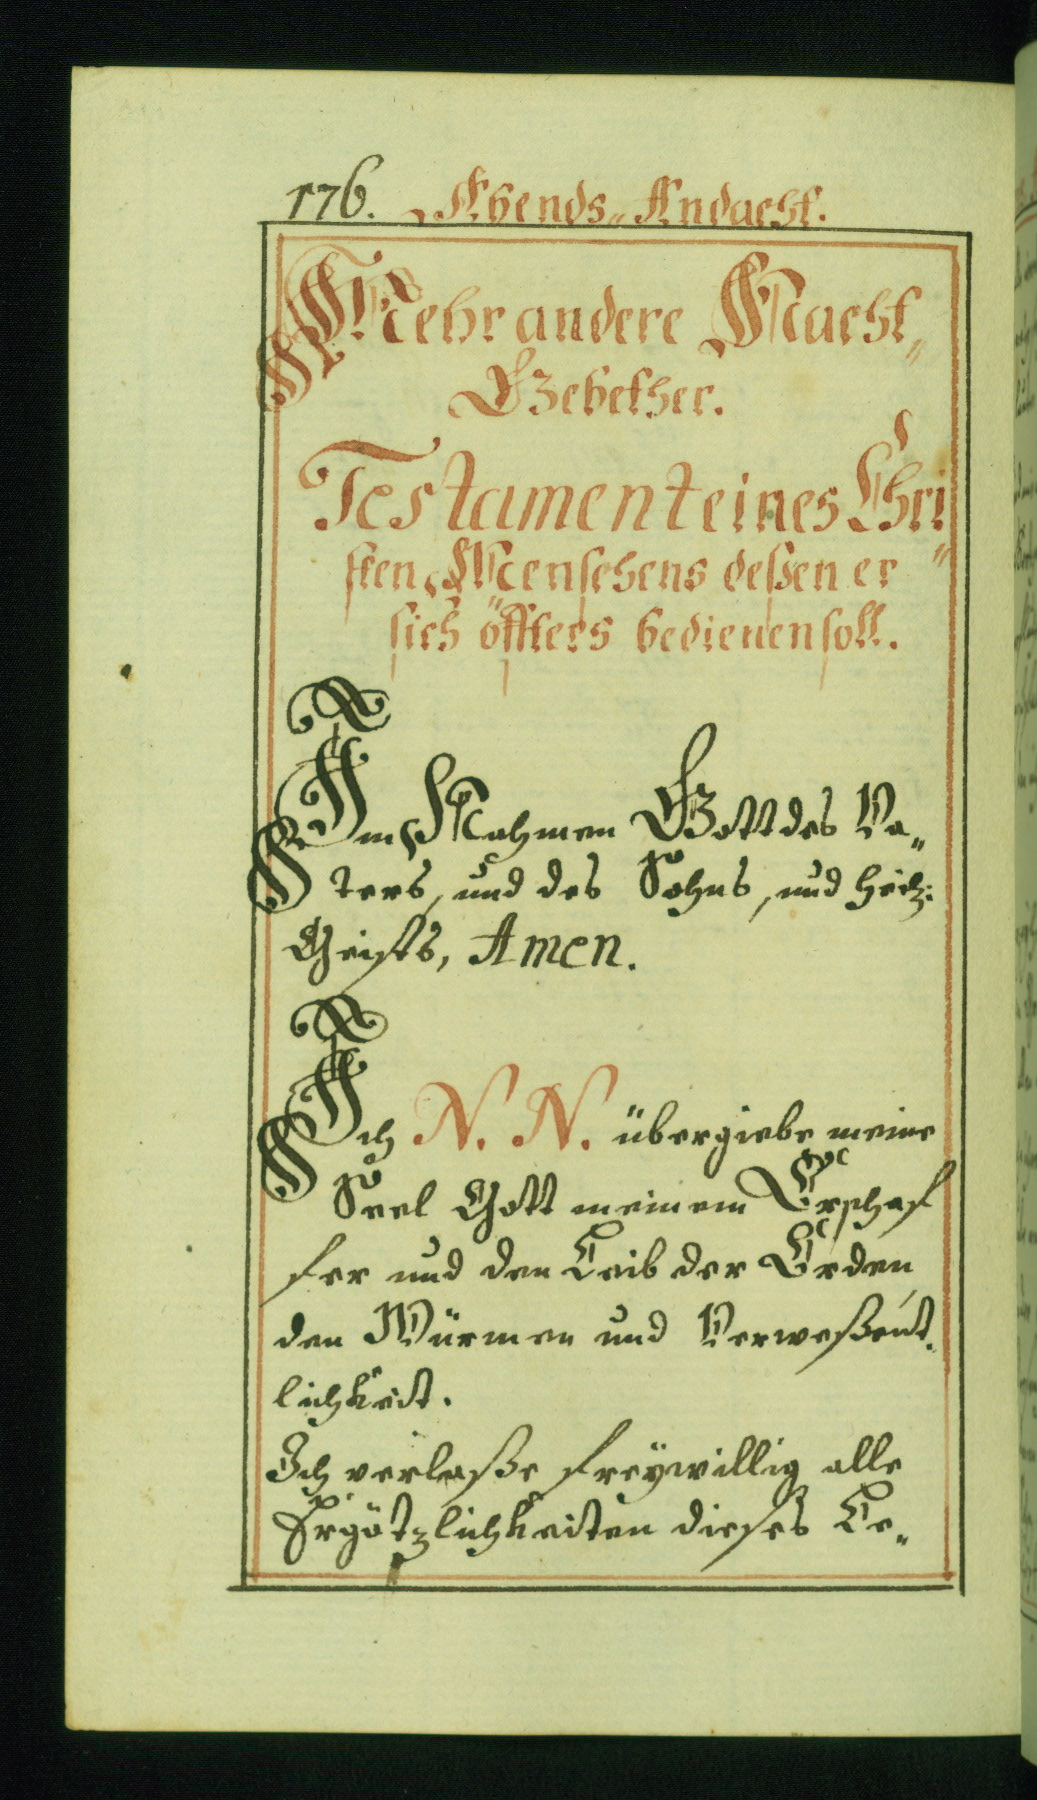 176. Abends„ Andacht.
Mehr andere Nacht„
Gebether.
Testament eines Chri„
sten Menschens deßen er
sich öffters bedienen soll.
Im Nahmen Gott des Va„
ters, und des Sohns, und heil:
Geists, Amen.
Ich N. N. übergiebe meine
Seel Gott meinem Erschaf
fer und den Leib der Erden,
den Würmen und Verweßent„
lichkeit.
Ich verlaße freÿwillig alle
Ergötzlichkeiten dieses Le„